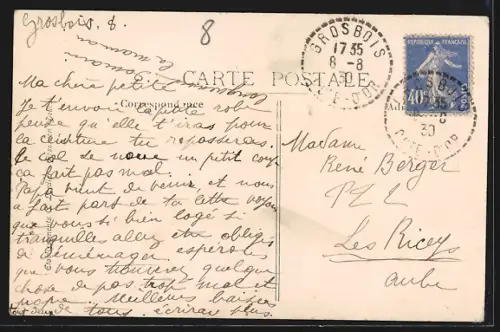 Grosbois. 8.
8
la maman
CARTE POSTALE
Correspondance
Ma chère petite
Je t'envoie la petite robe
pense qu'elle t'iras pour
la ceinture tu repasseras.
le col se noue un petit coup
ça fait pas mal.
Papa vient de venir, et nous
a fait part de ta lettre
que vous si bien logé si
tranquilles allez être obligés
de déménager espérons
que vous trouverez quelque
chose de pas trop mal et
propre. Meilleurs baisers
de tous. écrirai plus
GROSBOIS
17 35
8 - 8
30
COTE-D'OR
REPUBLIQUE FRANÇAISE
40c
17 35
30
COTE-D'OR
Madame
René Berger
Les Riceys
Aube